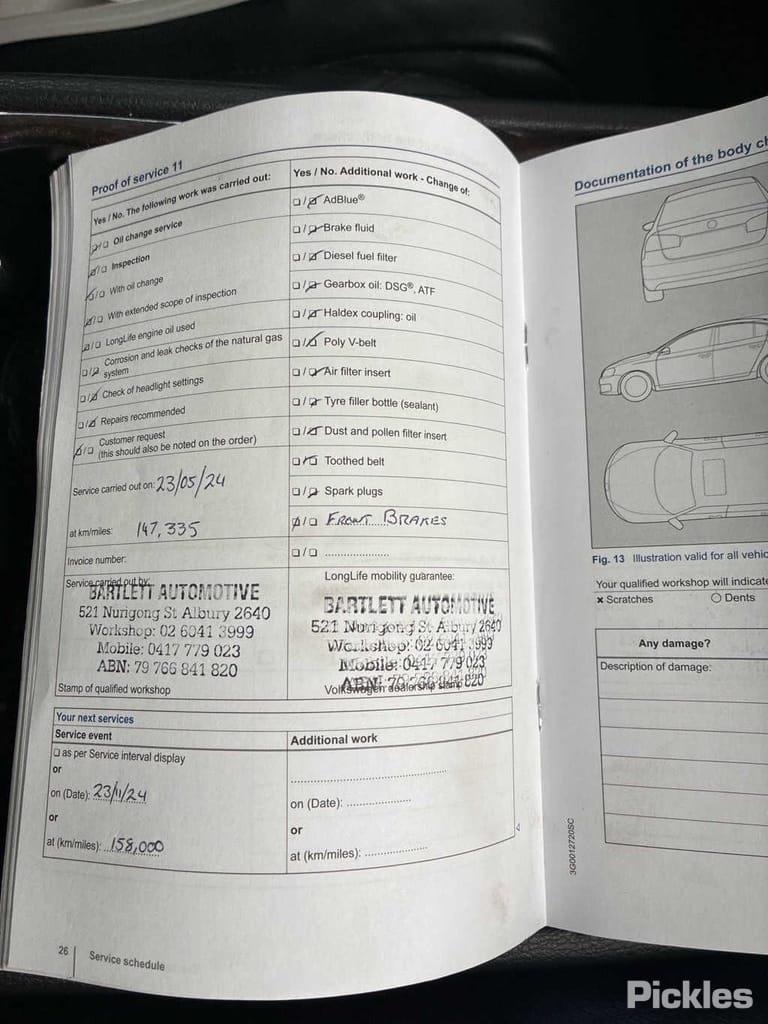 Proof of service 11
Yes / No. The following work was carried out:
❑/❑ Oil change service
❑/❑ Inspection
❑/❑ With oil change
❑/❑ With extended scope of inspection
❑/❑ LongLife engine oil used
❑/❑ Corrosion and leak checks of the natural gas
system
❑/❑ Check of headlight settings
❑/❑ Repairs recommended
❑/❑ Customer request
(this should also be noted on the order)
Service carried out on: 23/05/24
at km/miles: 147,335
Invoice number:
Service carried out by:
BARTLETT AUTOMOTIVE
521 Nurigong St Albury 2640
Workshop: 02 6041 3999
Mobile: 0417 779 023
ABN: 79 766 841 820
Stamp of qualified workshop
Yes / No. Additional work - Change of:
❑/❑ AdBlue®
❑/❑ Brake fluid
❑/❑ Diesel fuel filter
❑/❑ Gearbox oil: DSG®, ATF
❑/❑ Haldex coupling: oil
❑/❑ Poly V-belt
❑/❑ Air filter insert
❑/❑ Tyre filler bottle (sealant)
❑/❑ Dust and pollen filter insert
❑/❑ Toothed belt
❑/❑ Spark plugs
❑/❑ FRONT BRAKES
❑/❑ .....................
LongLife mobility guarantee:
BARTLETT AUTOMOTIVE
521 Nurigong St Albury 2640
Workshop: 02 6041 3999
Mobile: 0417 779 023
ABN: 79 766 841 820
Volkswagen dealership stamp
Your next services
Service event
❑ as per Service interval display
or
on (Date): 23/11/24
or
at (km/miles): 158,000
Additional work
on (Date): .....................
or
at (km/miles): .....................
26 Service schedule
Documentation of the body ch
Fig. 13 Illustration valid for all vehic
Your qualified workshop will indicate
× Scratches ○ Dents
Any damage?
Description of damage:
3G0012720SC
Pickles